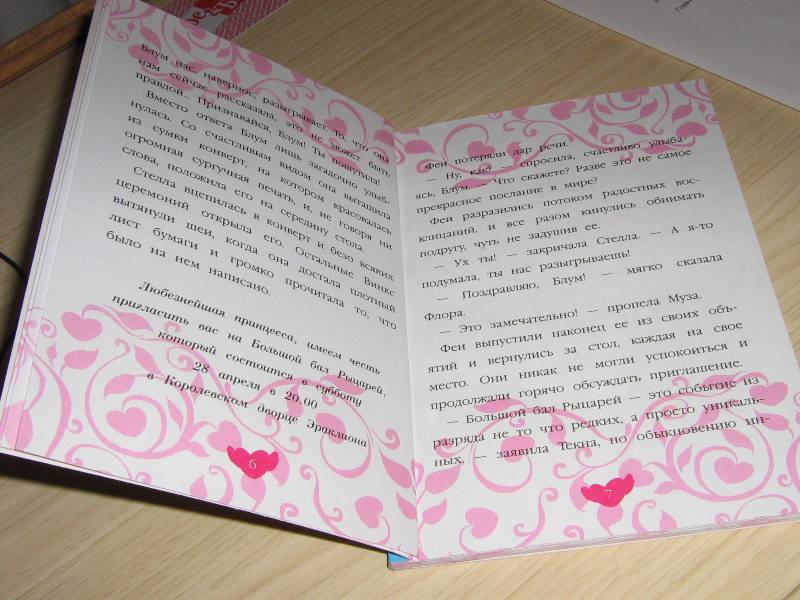 Блум нас, наверное, разыгрывает. То, что она
нам сейчас рассказала, это не может быть
правдой... Признавайся, Блум! Ты пошутила!
Вместо ответа Блум лишь загадочно улыб-
нулась. Со счастливым видом она вытащила
из сумки конверт, на котором красовалась
огромная сургучная печать, и, не говоря ни
слова, положила его на середину стола.
Стелла вцепилась в конверт и безо всяких
церемоний открыла его. Остальные Винкс
вытянули шеи, когда она достала плотный
лист бумаги и громко прочитала то, что
было на нем написано.
Любезнейшая принцесса, имеем честь
пригласить вас на Большой бал Рыцарей,
который состоится в субботу
28 апреля в 20.00
в Королевском дворце Эраклиона
6
Феи потеряли дар речи.
— Ну, как? — спросила, счастливо улыба-
ясь, Блум. — Что скажете? Разве это не самое
прекрасное послание в мире?
Феи разразились потоком радостных вос-
клицаний, и все разом кинулись обнимать
подругу, чуть не задушив ее.
— Ух ты! — закричала Стелла. — А я-то
подумала, ты нас разыгрываешь!
— Поздравляю, Блум! — мягко сказала
Флора.
— Это замечательно! — пропела Муза.
Феи выпустили наконец ее из своих объ-
ятий и вернулись за стол, каждая на свое
место. Они никак не могли успокоиться и
продолжали горячо обсуждать приглашение.
— Большой бал Рыцарей — это событие из
разряда не то что редких, а просто уникаль-
ных, — заявила Текна, но обыкновению ин-
7